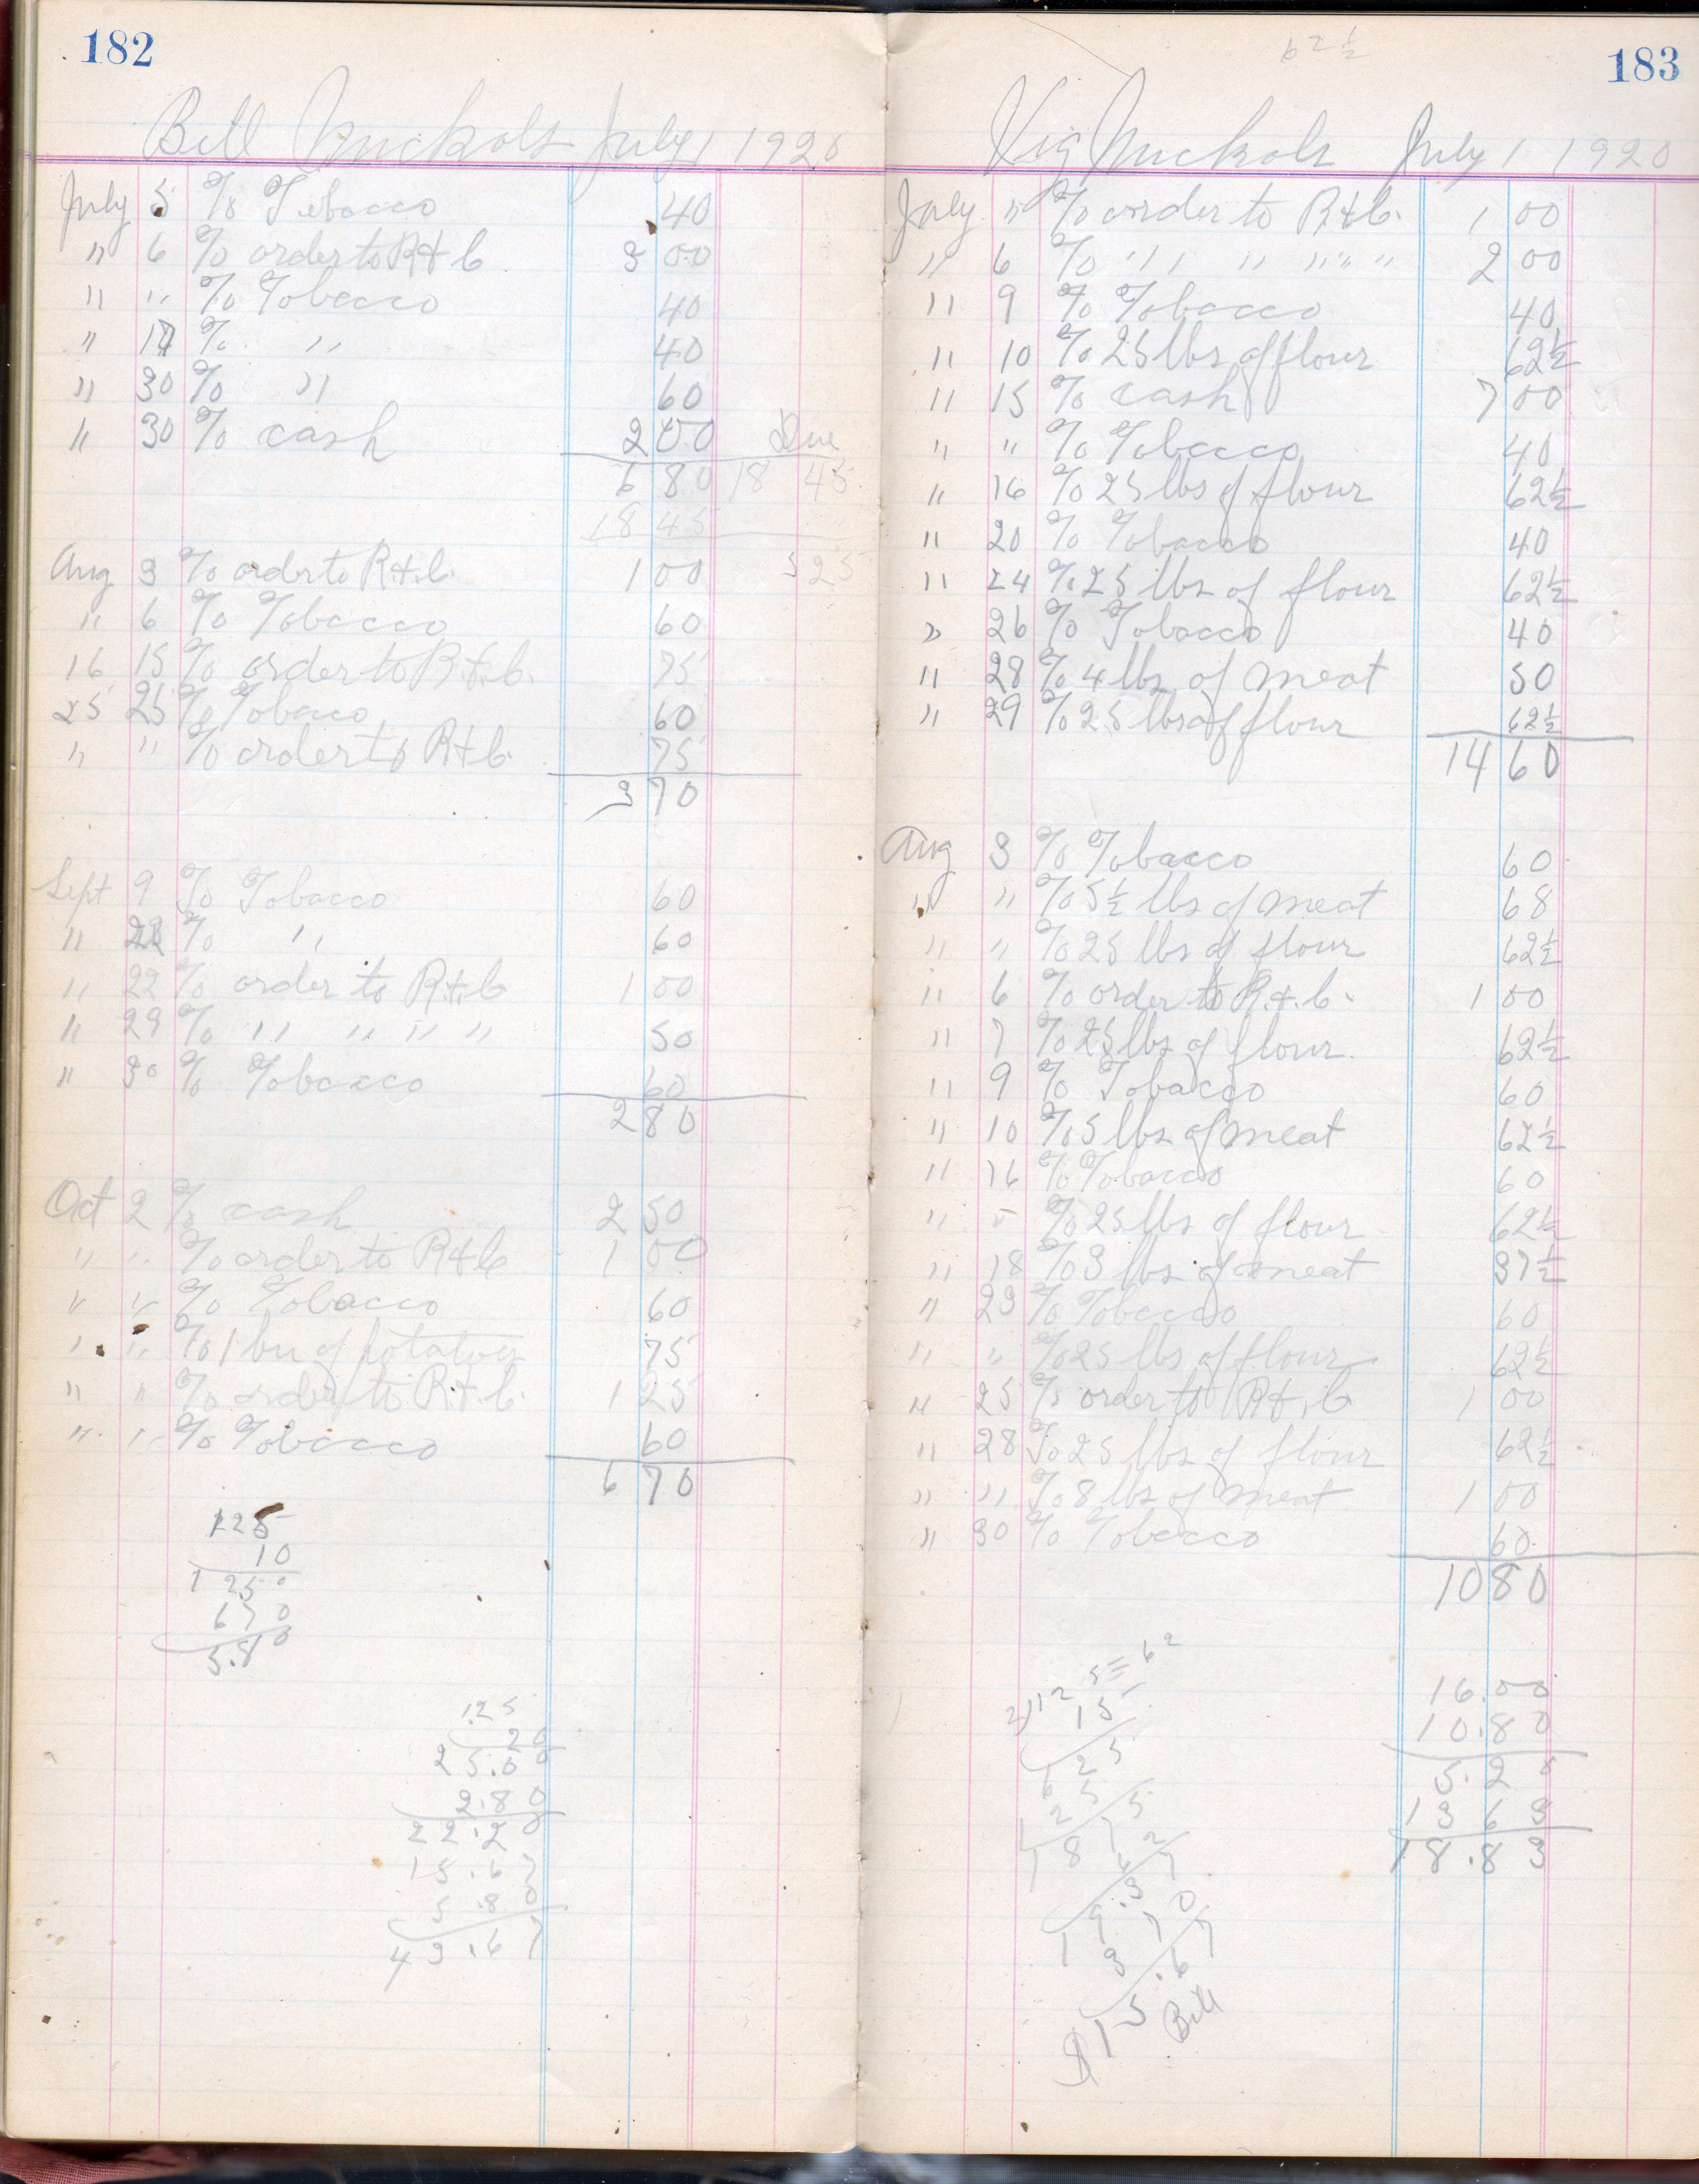 182
Bill Nuckols July 1 1920
July 5 % Tobacco 40
" 6 % order to R+C 3 00
" " % Tobacco 40
" 17 % " 40
" 30 % " 60
" 30 % cash 2 00 Due
6 80 18 45
18 45
Aug 3 % order to R.+.C. 1 00 5 25
" 6 % Tobacco 60
16 15 % order to R.+.C. 75
25 25 % Tobaco 60
" " % order to R+C. 75
3 70
Sept 9 % Tobacco 60
" 22 % " 60
" 22 % order to R.+.C 1 00
" 29 % " " " " 50
" 30 % Tobacco 60
2 80
Oct 2 % cash 2 50
" " % order to R+C 1 00
" " % Tobacco 60
" " % 1 bu of potatoes 75
" " % order to R.+.C. 1 25
" " % Tobacco 60
6 70
125
10
1 250
670
5.80
1.25
20
25.00
2.80
22.20
15.67
5.80
43.67
62½
183
Vig Nuckols July 1 1920
July " % order to R.+C. 1 00
" 6 % " " " " " 2 00
" 9 % Tobacco 40
" 10 % 25 lbs of flour 62½
" 15 % cash 7 00
" " % Tobacco 40
" 16 % 25 lbs of flour 62½
" 20 % Tobacco 40
" 24 % 25 lbs of flour 62½
" 26 % Tobacco 40
" 28 % 4 lbs of meat 50
" 29 % 25 lbs of flour 62½
14 60
Aug 3 % Tobacco 60
" " % 5½ lbs of meat 68
" " % 25 lbs of flour 62½
" 6 % order to R.+.C. 1 00
" 7 % 25 lbs of flour 62½
" 9 % Tobacco 60
" 10 % 5 lbs of meat 62½
" 16 % Tobacco 60
" " % 25 lbs of flour 62½
" 18 % 3 lbs of meat 37½
" 23 % Tobacco 60
" " % 25 lbs of flour 62½
" 25 % order to R+.C 1 00
" 28 % 25 lbs of flour 62½
" " % 8 lbs of meat 1 00
" 30 % Tobacco 60
10 80
16.00
10.80
5.20
13 63
18.83
2)125=62
15
625
125
1875
62
19.37
3 70
$15.67
Bill